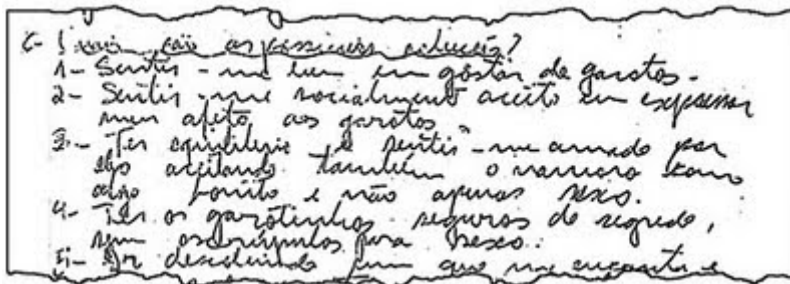 6- Quais são as possíveis soluções?
1- Sentir-me bem em gostar de garotos.
2- Sentir-me socialmente aceito em expressar
meu afeto aos garotos
3- Ter equilíbrio e sentir-me amado por
eles aceitando também o namoro como
algo bonito e não apenas sexo.
4- Ter os garotinhos seguros do segredo,
sem escrúpulos para sexo.
5- Ir descobrindo um que me encante e